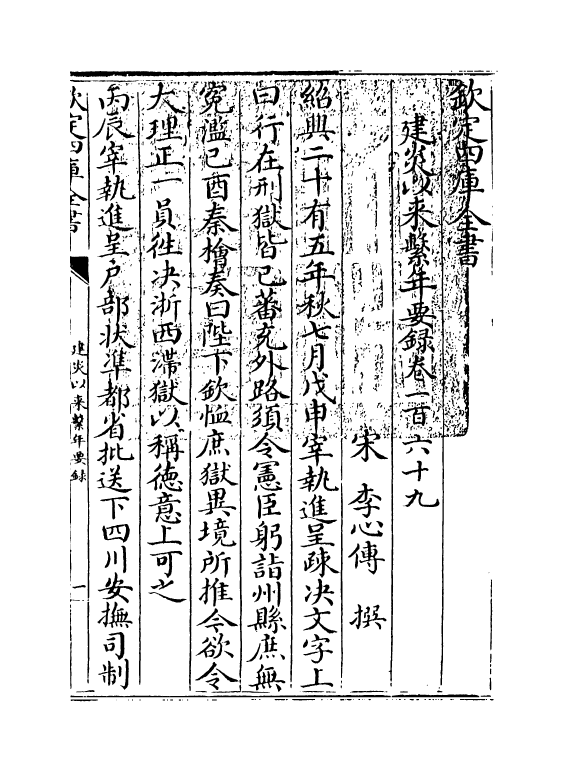 欽定四庫全書
建炎以来繫年要録卷一百六十九
宋 李心傳 撰
紹興二十有五年秋七月戊申宰執進呈疎决文字上
曰行在刑獄皆已蕃充外路須令憲臣躬詣州縣庶無
寃濫己酉秦檜奏曰陛下欽恤庶獄異境所推今欲令
大理正一員徃决浙西滯獄以稱徳意上可之
丙辰宰執進呈户部狀準都省批送下四川安撫司制
欽定四庫全書
建炎以来繫年要録
一